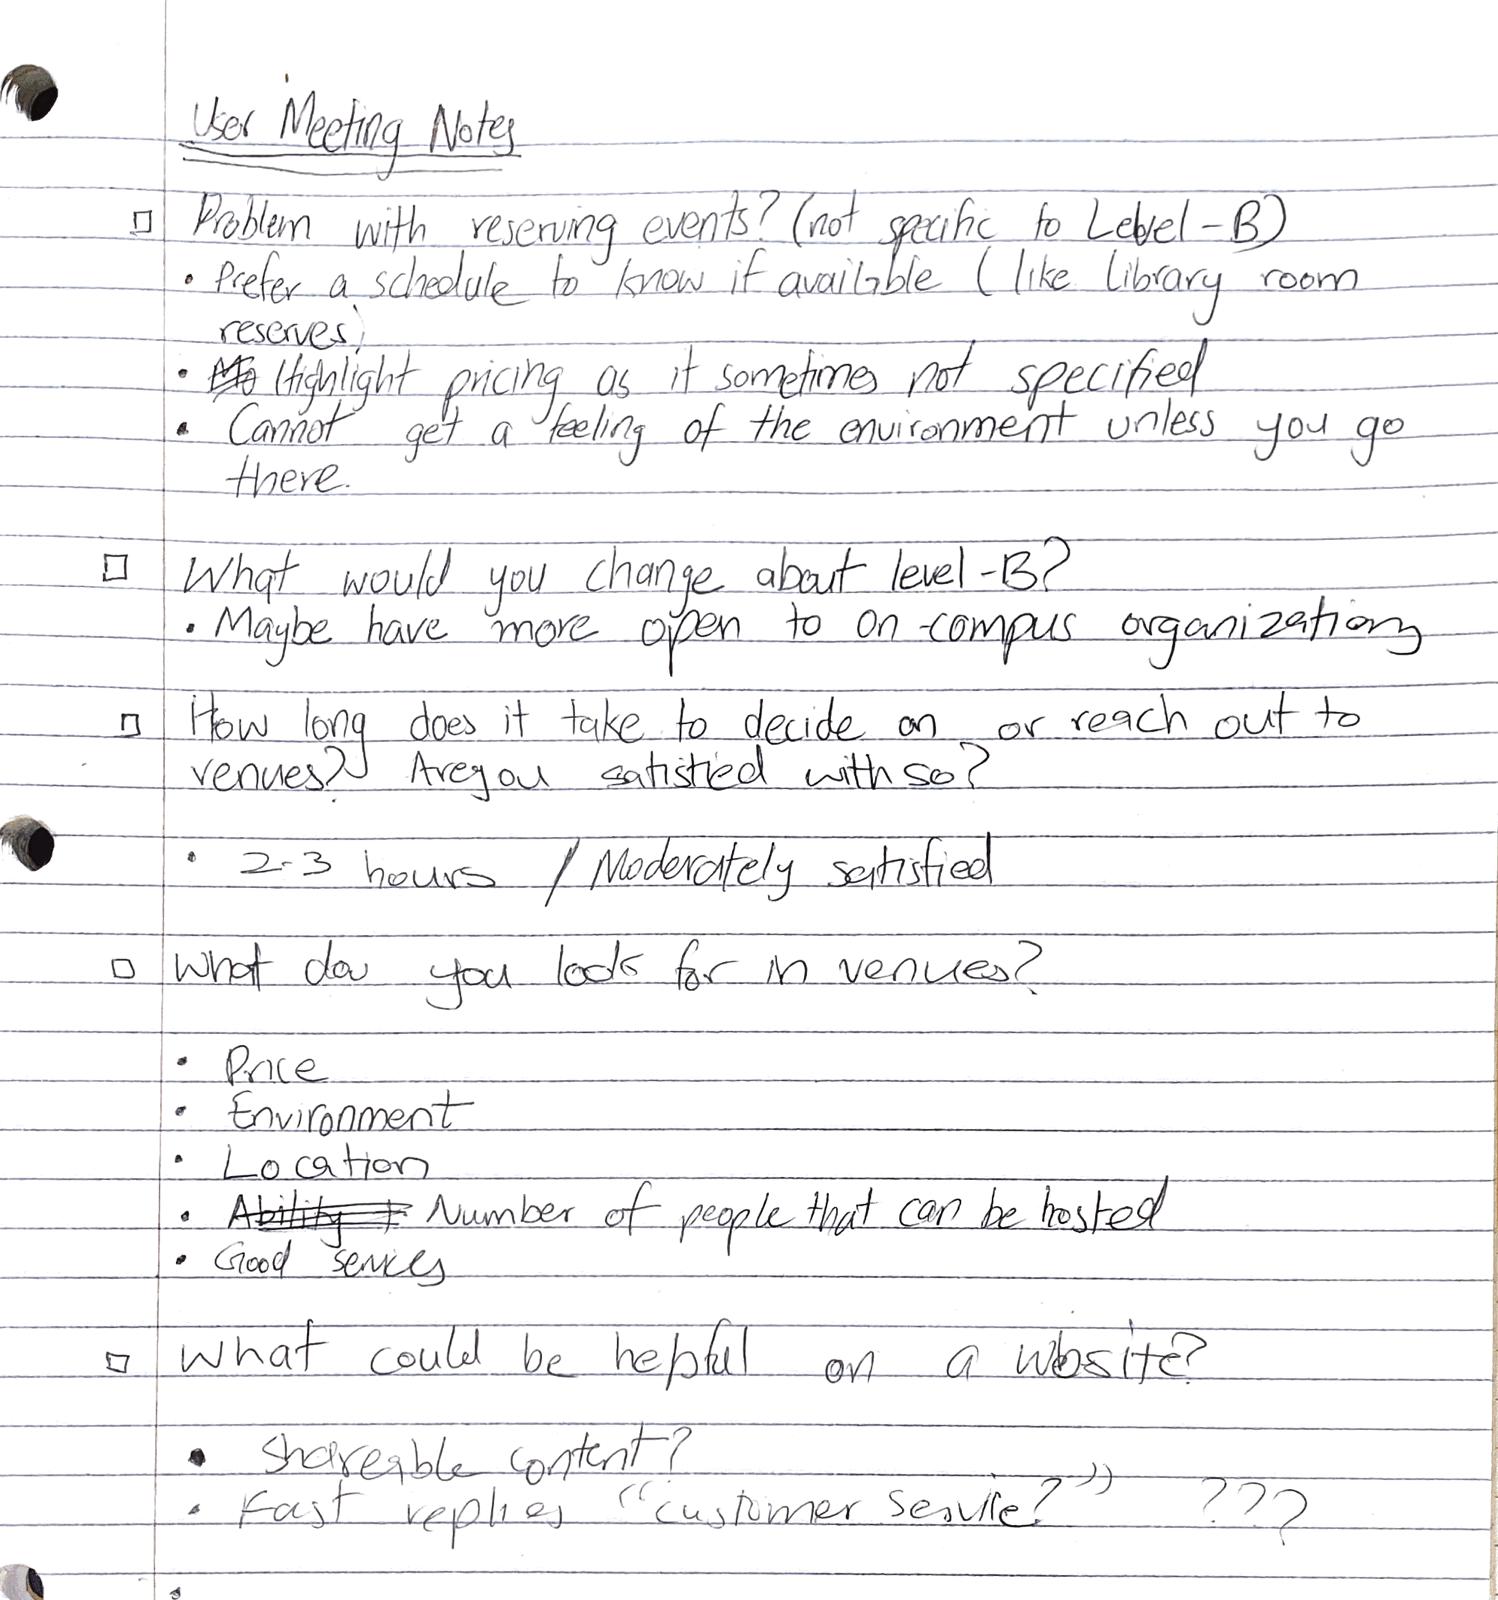 User Meeting Notes
Problem with reserving events? (not specific to Level-B)
• Prefer a schedule to know if available (like library room
reserves)
• Highlight pricing as it sometimes not specified
• Cannot get a feeling of the environment unless you go
there.
What would you change about level-B?
• Maybe have more open to on-campus organizations
How long does it take to decide on or reach out to
venues? Are you satisfied with so?
• 2-3 hours / Moderately satisfied
What do you look for in venues?
• Price
• Environment
• Location
• Ability Number of people that can be hosted
• Good services
What could be helpful on a wbsite?
• Shareable content?
• Fast replies "customer service?" ???